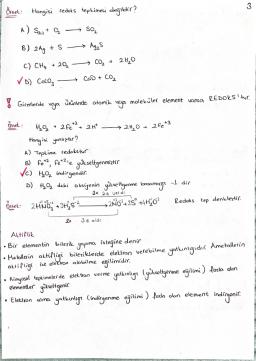 3
Örnek: Hangisi redoks tepkimesi değildir?
A) S(k) + O₂ → SO₂
B) 2Ag + S → Ag₂S
C) CH₄ + 2O₂ → CO₂ + 2H₂O
✓ D) CaCO₃ → CaO + CO₂
! Girenlerde veya ürünlerde atomik veya moleküler element varsa REDOKS'tur.
Örnek: H₂O₂ + 2Fe⁺² + 2H⁺ → 2H₂O + 2Fe⁺³
Hangisi yanlıştır?
A) Tepkime redokstur.
B) Fe⁺², Fe⁺³'e yükseltgenmiştir
✓ C) H₂O₂ indirgendir.
D) H₂O₂ deki oksijenin yükseltgenme basamağı -1 dir
Örnek: 2HNO₃ + 3H₂S⁻² → 2NO + 3S + 4H₂O Redoks tep. denklestir.
Aktiflik
• Bir elementin bileşik yapma isteğine denir
• Metallerin aktifliği bileşiklerde elektron verebilme yatkınlığıdır. Ametallerin
aktifliği ise elektron alabilme eğilimidir.
• Kimyasal tepkimelerde elektron verme yatkınlığı (yükseltgenme eğilimi) fazla olan
elementler yükseltgenir.
• Elektron alma yatkınlığı (indirgenme eğilimi) fazla olan element indirgenir.